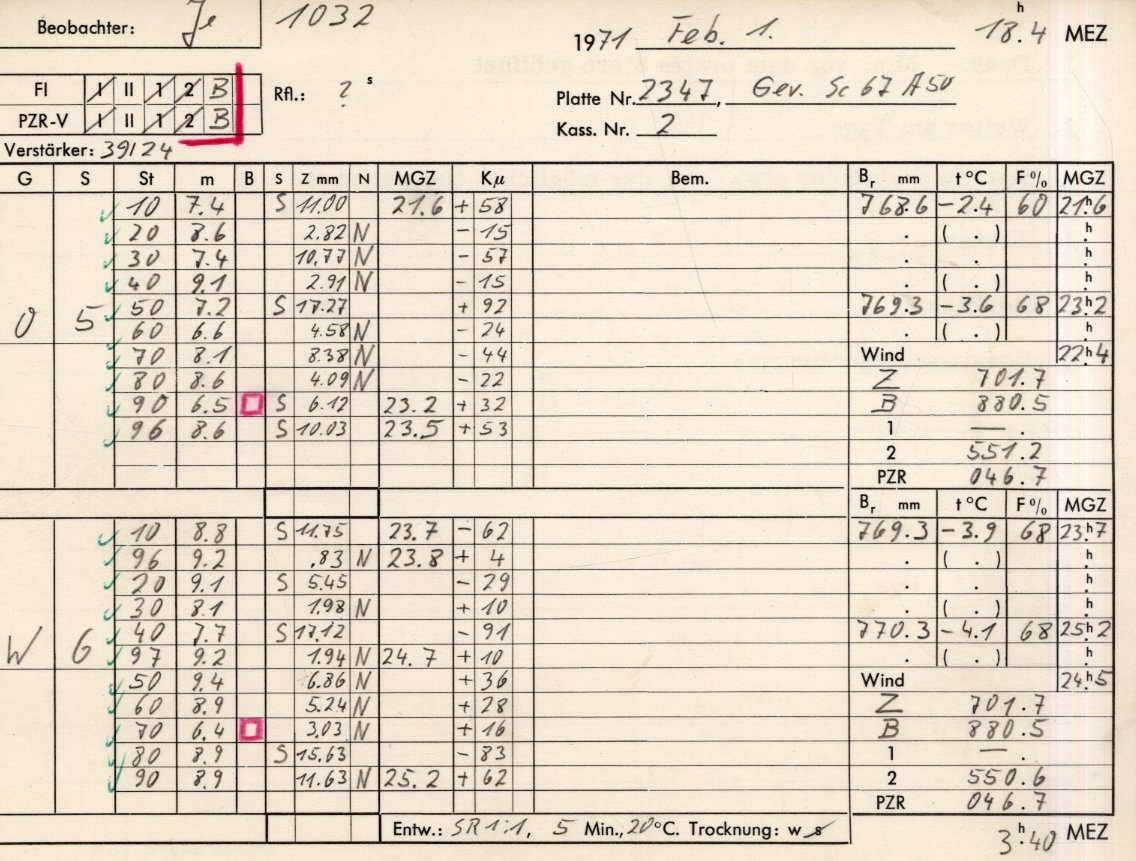 Beobachter: Je 1032
1971 Feb. 1. 18.ʰ4 MEZ
FI I II 1 2 B Rfl.: ? s
Platte Nr. 2347, Gev. Sc 67 A 50
PZR-V I II 1 2 B
Kass. Nr. 2
Verstärker: 39/24
G S St m B S Z mm N MGZ Kµ Bem. Bᵣ mm t °C F % MGZ
10 7.4 S 11.00 21.6 + 58 768.6 -2.4 60 21ʰ6
20 8.6 2.82 N - 15 . ( . ) h
30 7.4 10.77 N - 57 . . h
40 9.1 2.91 N - 15 ( . ) h
O 5 50 7.2 S 17.27 + 92 769.3 -3.6 68 23ʰ2
60 6.6 4.58 N - 24 . ( . ) h
70 8.1 8.38 N - 44 Wind 22ʰ4
80 8.6 4.09 N - 22 Z 701.7
90 6.5 S 6.12 23.2 + 32 B 880.5
96 8.6 S 10.03 23.5 + 53 1 — .
2 551.2
PZR 046.7
Bᵣ mm t °C F % MGZ
10 8.8 S 11.75 23.7 - 62 769.3 -3.9 68 23ʰ7
96 9.2 .83 N 23.8 + 4 . ( . ) h
20 9.1 S 5.45 - 29 . . h
30 8.1 1.98 N + 10 . ( . ) h
W 6 40 7.7 S 17.12 - 91 770.3 -4.1 68 25ʰ2
97 9.2 1.94 N 24.7 + 10 . ( . ) h
50 9.4 6.86 N + 36 Wind 24ʰ5
60 8.9 5.24 N + 28 Z 701.7
70 6.4 3.03 N + 16 B 880.5
80 8.9 S 15.63 - 83 1 — .
90 8.9 11.63 N 25.2 + 62 2 550.6
PZR 046.7
Entw.: SR 1:1, 5 Min., 20 °C. Trocknung: w s 3ʰ.40 MEZ